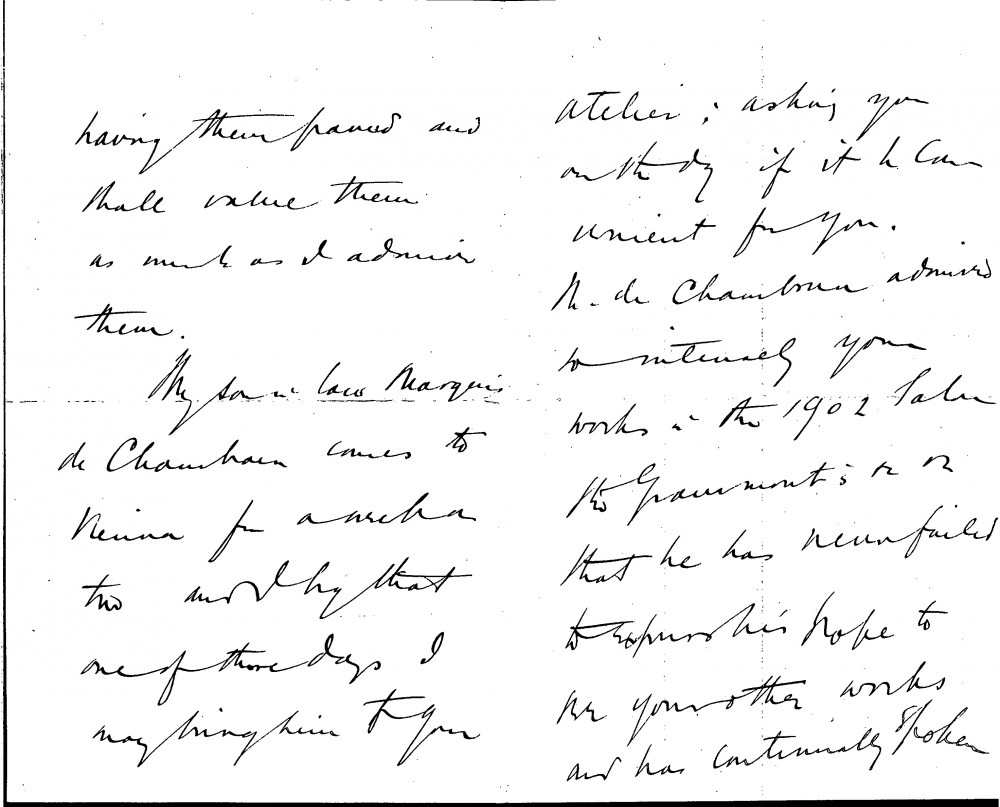 having them framed and
shall value them
as much as I admire
them.
My son in law Marquis
de Chambrun comes to
Vienna for a week or
two and I beg that
one of those days I
may bring him to your
atelier; asking you
on the day if it be con
venient for you.
M. de Chambrun admired
so intensely your
works in the 1902 Salon
the
that he has never failed
to express his hope to
see your other works
and has continually spoken